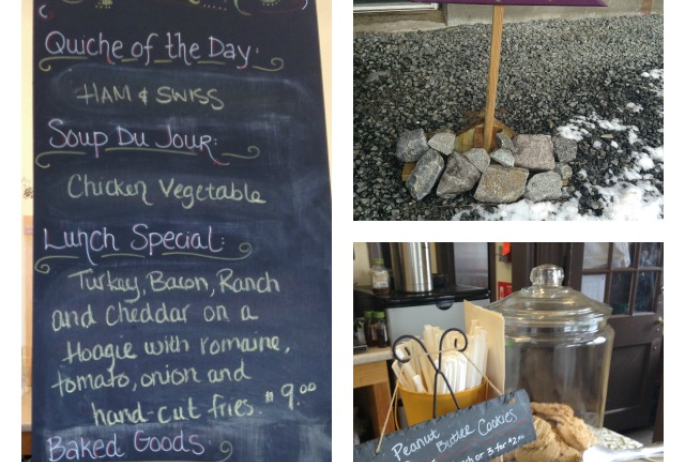 Quiche of the Day:
HAM & SWISS
Soup Du Jour:
Chicken Vegetable
Lunch Special:
Turkey, Bacon, Ranch
and Cheddar on a
Hoagie with romaine,
tomato, onion and
hand-cut fries. $9.00
Baked Goods:
Peanut Butter Cookies
or 3 for $2.00